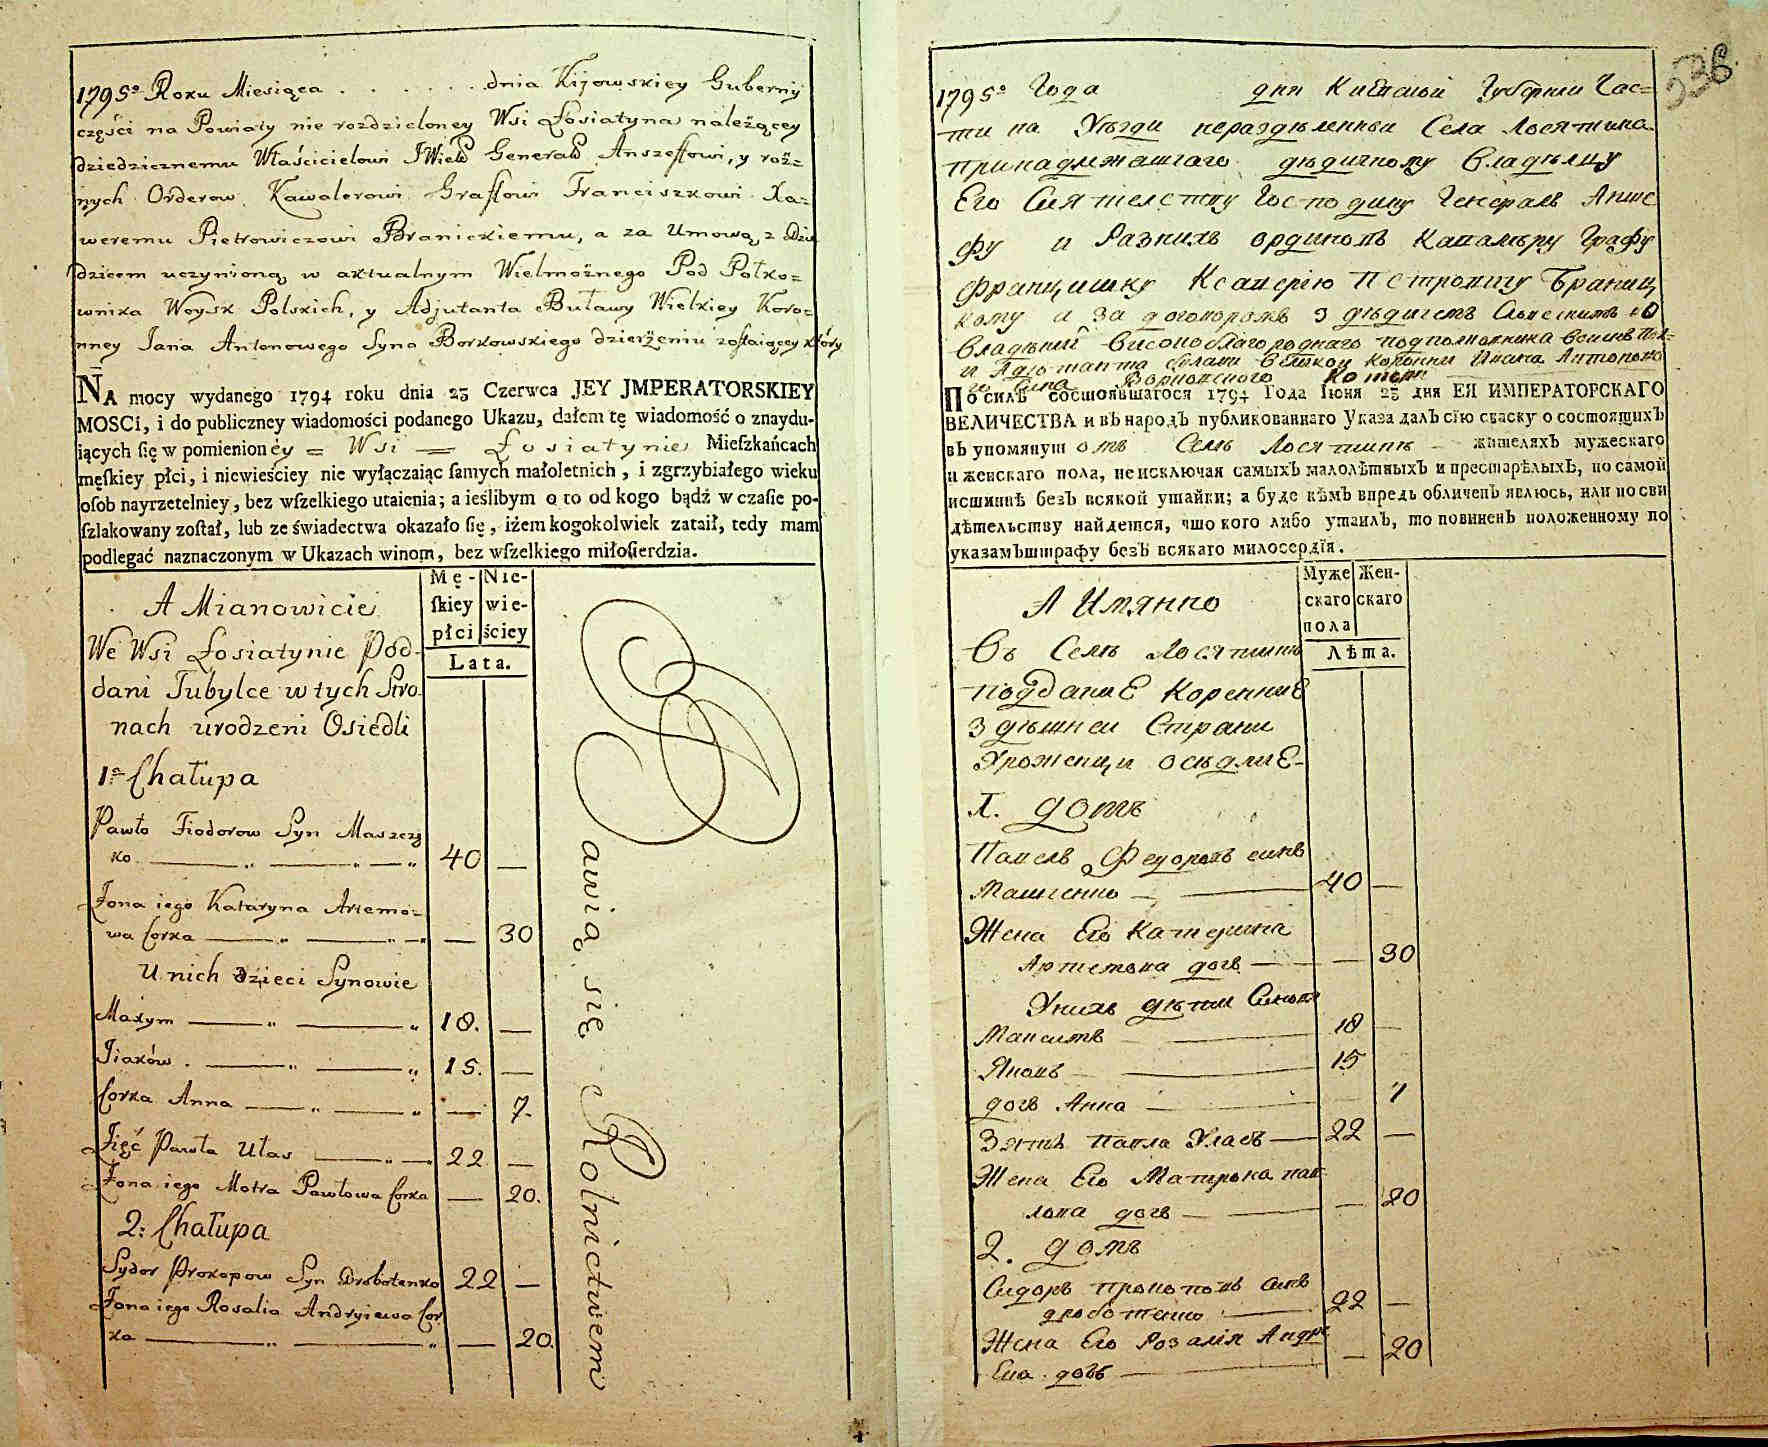 1795º Roku Miesiąca . . . . . . dnia Kijowskiey Guberny
części na Powiaty nie rozdzieloney Wsi Łosiatyna należącey
dziedzicznemu Właścicielowi JWielᵒ Generałᵒ Anszeffowi, y róż=
nych Orderow Kawalerowi Graffowi Franciszkowi Xa=
weremu Pietrowiczowi Branickiemu, a za Umową z Dzie
dzicem uczynioną w aktualnym Wielmożnego Pod Połko=
wnika Woysk Polskich, y Adjutanta Buławy Wielkiey Koro=
nney Jana Antonowego Syna Borkowskiego dzierżeniu zostaiącey który
NA mocy wydanego 1794 roku dnia 23 Czerwca JEY JMPERATORSKIEY
MOSCI, i do publiczney wiadomości podanego Ukazu, dałem tę wiadomość o znaydu-
iących ſię w pomienioney = Wsi = Łosiatynie Mieſzkańcach
męſkiey płci, i niewieściey nie wyłączaiąc ſamych małoletnich, i zgrzybiałego wieku
oſob nayrzetelniey, bez wſzelkiego utaienia; a ieślibym o to od kogo bądź w czaſie po-
ſzlakowany zoſtał, lub ze świadectwa okazało ſię, iżem kogokolwiek zataił, tedy mam
podlegać naznaczonym w Ukazach winom, bez wſzelkiego miłoſierdzia.
A Mianowicie
Mę- Nie-
ſkiey wie-
płci ściey
Lata.
We Wsi Łosiatynie Pod-
dani Tubylce w tych Stro-
nach urodzeni Osiedli
1ª Chałupa
Pawło Fiodorow Syn Maszczy
ko 40 —
Żona iego Kataryna Artemo=
wa Corka — 30
U nich dzieci Synowie
Maxym 18. —
Jiaków . 15. —
Corka Anna — 7.
Zięć Pawła Ułas 22 —
Żona iego Motra Pawłowa Corka — 20.
2: Chałupa
Sydor Prokopow Syn Drobotenko 22 —
Żona iego Rosalia Andryiewa Cor
ka — 20.
Bawią się Rolnictwem
538
1795º Года дня Киевской Губернии Час=
ти на Уезди нераздѣленной Села Лосятина
принадлежащаго дѣдичному Владѣлцу
Его Сиятелству Господину Генералъ Анше
фу и Разнихъ ординовъ Кавалѣру Графу
Францишку Ксаверію Петровичу Браниц
кому а за договоромъ з дѣдичемъ
Владѣний Високоблагороднаго подполковника
и Адютанта Ивана Антонова
го Сина Борковского
ПО силѣ состоявшагося 1794 Года Іюня 23 дня ЕЯ ИМПЕРАТОРСКАГО
ВЕЛИЧЕСТВА и въ народъ публикованнаго Указа далъ сію сказку о состоящихъ
въ упомянутомъ Селѣ Лосятинѣ — жителяхъ мужескаго
и женскаго пола, не исключая самыхъ малолѣтныхъ и престарѣлыхъ, по самой
истиннѣ безъ всякой утайки; а буде кѣмъ впредь обличенъ явлюсь, или по сви
дѣтельству найдется, что кого либо утаилъ, то повиненъ положенному по
указамъ штрафу безъ всякаго милосердїя.
А Имянно
Муже Жен-
скаго скаго
пола
Лѣта.
Въ Селѣ Лосятинѣ
подданиЕ КоренниЕ
здѣшней Страни
Уроженци осѣдлиЕ-
1. домъ
Павелъ Федоровъ синъ
Мащенко 40 —
Жена Его Катерина
Артемова дочь — 30
У нихъ дѣти Синови
Максимъ 18 —
Яковъ 15
дочь Анна 7
Зять Павла Уласъ 22 —
Жена Его Матрона пав
лова дочь — 20
2. домъ
Сидоръ прокоповъ синъ
дроботенко 22 —
Жена Его Розалія Андре
Ева дочь — 20